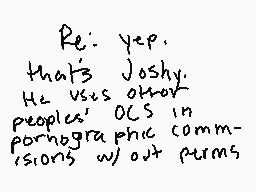 Re: yep.
that's Joshy.
He uses other
peoples' OCS in
pornographic comm-
isions w/out perms